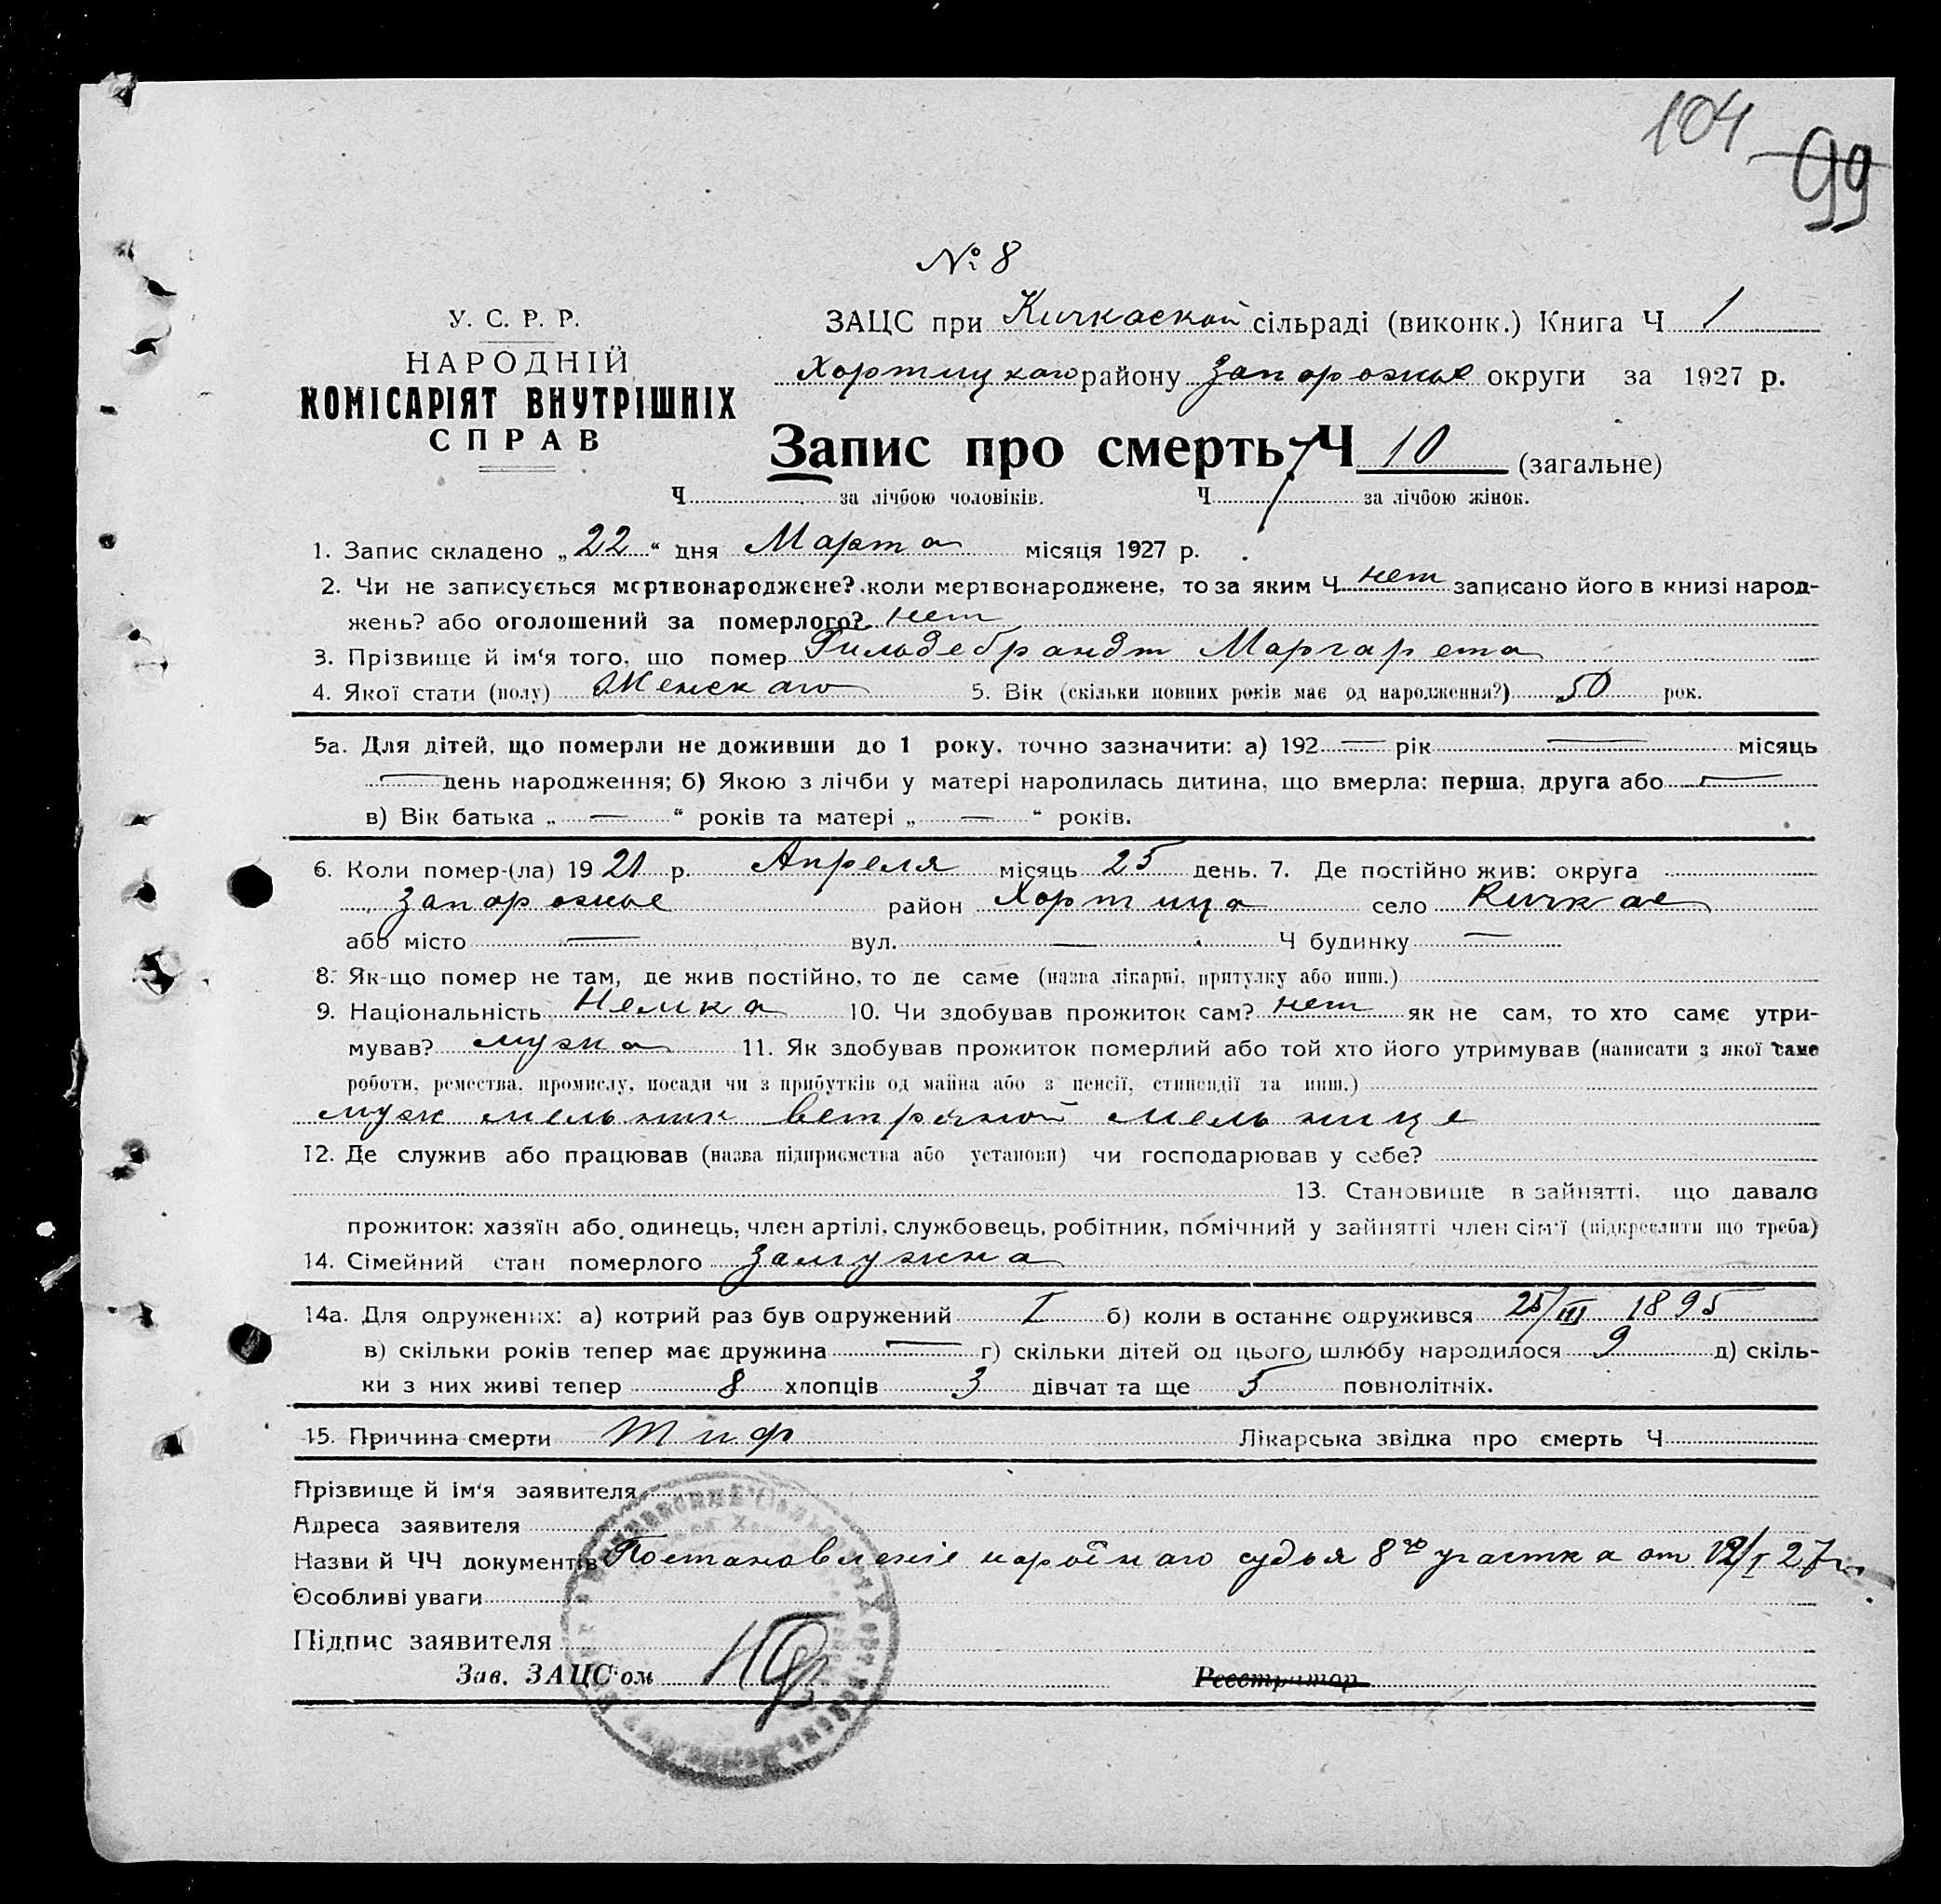 104 99
№ 8
У. С. Р. Р.
НАРОДНІЙ
КОМІСАРІЯТ ВНУТРІШНІХ
СПРАВ
ЗАЦС при Кичкаской сільраді (виконк.) Книга Ч 1
Хортицкаго району Запорожье округи за 1927 р.
Запис про смерть Ч 10 (загальне)
Ч за лічбою чоловіків. Ч за лічбою жінок.
1. Запис складено „22“ дня Марта місяця 1927 р.
2. Чи не записується мертвонароджене? коли мертвонароджене, то за яким Ч нет записано його в книзі народ-
жень? або оголошений за померлого? нет
3. Прізвище й ім'я того, що помер Гильдебрандт Маргарета
4. Якої стати (полу) Женскаго 5. Вік (скільки повних років має од народження?) 50 рок.
5а. Для дітей, що померли не доживши до 1 року, точно зазначити: а) 192 — рік — місяць
— день народження; б) Якою з лічби у матері народилась дитина, що вмерла: перша, друга або —
в) Вік батька „ — “ років та матері „ — “ років.
6. Коли помер-(ла) 1921 р. Апреля місяць 25 день. 7. Де постійно жив: округа
Запорожье район Хортица село Кичкас
або місто — вул. — Ч будинку —
8. Як-що помер не там, де жив постійно, то де саме (назва лікарні, притулку або инш.)
9. Національність Немка 10. Чи здобував прожиток сам? нет як не сам, то хто саме утри-
мував? мужа 11. Як здобував прожиток померлий або той хто його утримував (написати з якої саме
роботи, ремества, промислу, посади чи з прибутків од майна або з пенсії, стипендії та инш.)
муж мельник ветряной мельнице
12. Де служив або працював (назва підприємства або установи) чи господарював у себе?
13. Становище в зайнятті, що давало
прожиток: хазяїн або одинець, член артілі, службовець, робітник, помічний у зайнятті член сім'ї (підкреслити що треба)
14. Сімейний стан померлого замужна
14а. Для одружених: а) котрий раз був одружений I б) коли в останнє одружився 25/III 1895
в) скільки років тепер має дружина — г) скільки дітей од цього шлюбу народилося 9 д) скіль-
ки з них живі тепер 8 хлопців 3 дівчат та ще 5 повнолітніх.
15. Причина смерти Тиф Лікарська звідка про смерть Ч
Прізвище й ім'я заявителя
Адреса заявителя
Назви й ЧЧ документів Постановленіе народнаго судья 8го участка от 12/I 27 г.
Особливі уваги
Підпис заявителя
Зав. ЗАЦС'ом Реєстратор